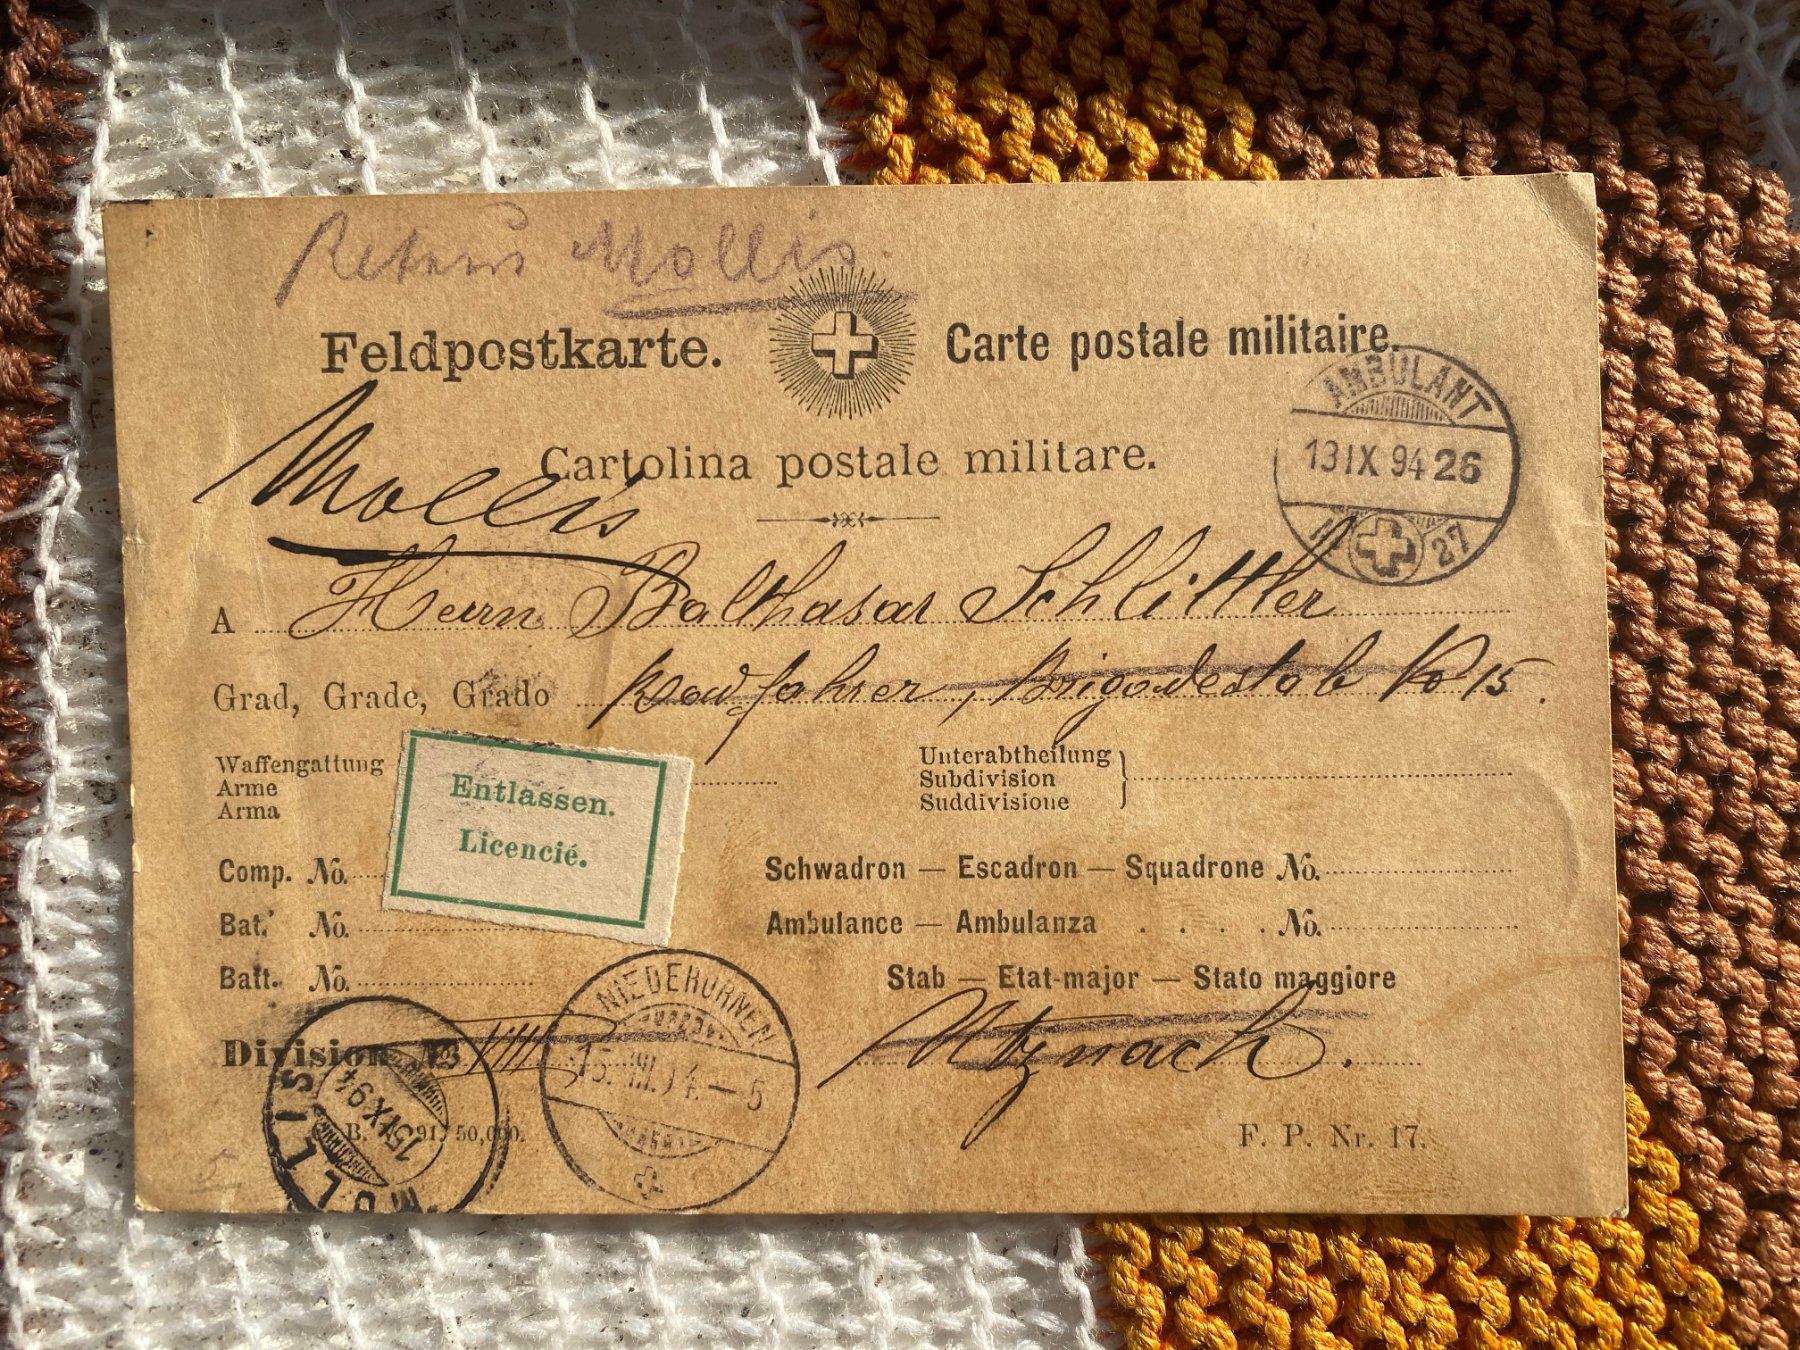 Retour Mollis
Feldpostkarte. Carte postale militaire.
Cartolina postale militare.
Mollis
AMBULANT
13 IX 94 26
27
A Herrn Balthasar Schlittler
Grad, Grade, Grado Radfahrer, Brigadestab No 15.
Waffengattung
Arme
Arma
Unterabtheilung
Subdivision
Suddivisione
Entlassen.
Licencié.
Comp. No.
Schwadron — Escadron — Squadrone No.
Bat. No.
Ambulance — Ambulanza . . . . No.
Batt. No.
Stab — Etat-major — Stato maggiore
Division No VIII
Utznach.
NIEDERURNEN
15. IX. 94. – 5
MOLLIS
15 IX 94
B. 91. 50,000.
F. P. Nr. 17.